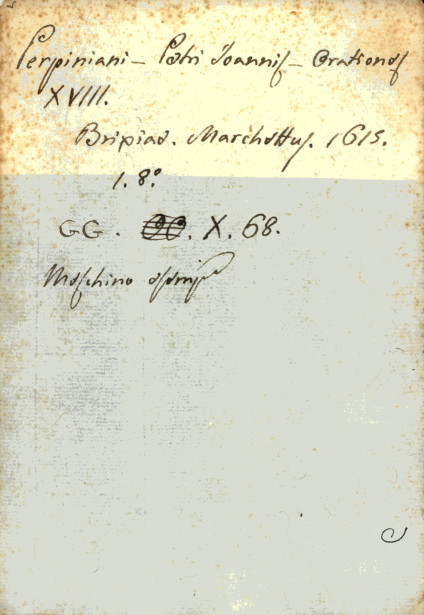 Perpiniani - Petri Joannis - Orationes
XVIII.
Brixiae. Marchettus. 1615.
1. 8.°
GG. X. 68.
Meschino